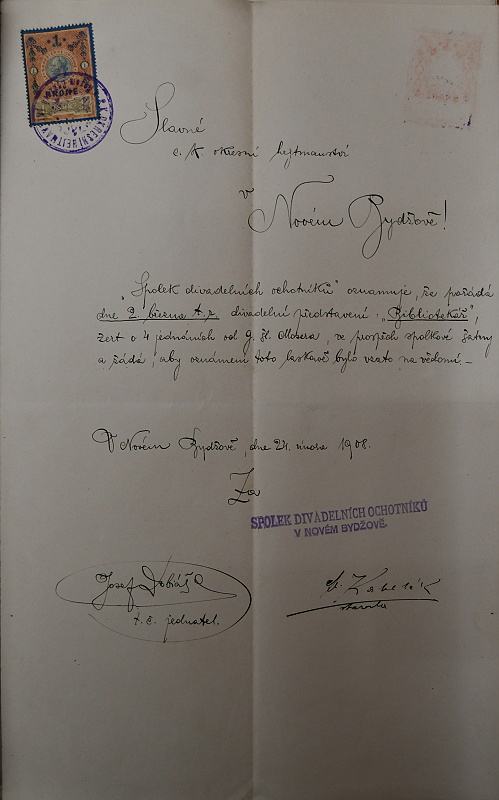 1
KRONE
K.K. OKRESNÍ HEJTMAN
Slavné
c. k. okresní hejtmanství
v
Novém Bydžově!
„Spolek divadelních ochotníků" oznamuje, že pořádá
dne 2. března t. r. divadelní představení: „Bibliotekář",
žert o 4 jednáních od G. Fl. Mosera, ve prospěch spolkové šatny
a žádá, aby oznámení toto laskavě bylo vzato na vědomí. –
V Novém Bydžově, dne 24. února 1908.
Za
SPOLEK DIVADELNÍCH OCHOTNÍKŮ
V NOVÉM BYDŽOVĚ.
Josef Dobiáš
t. č. jednatel.
starosta